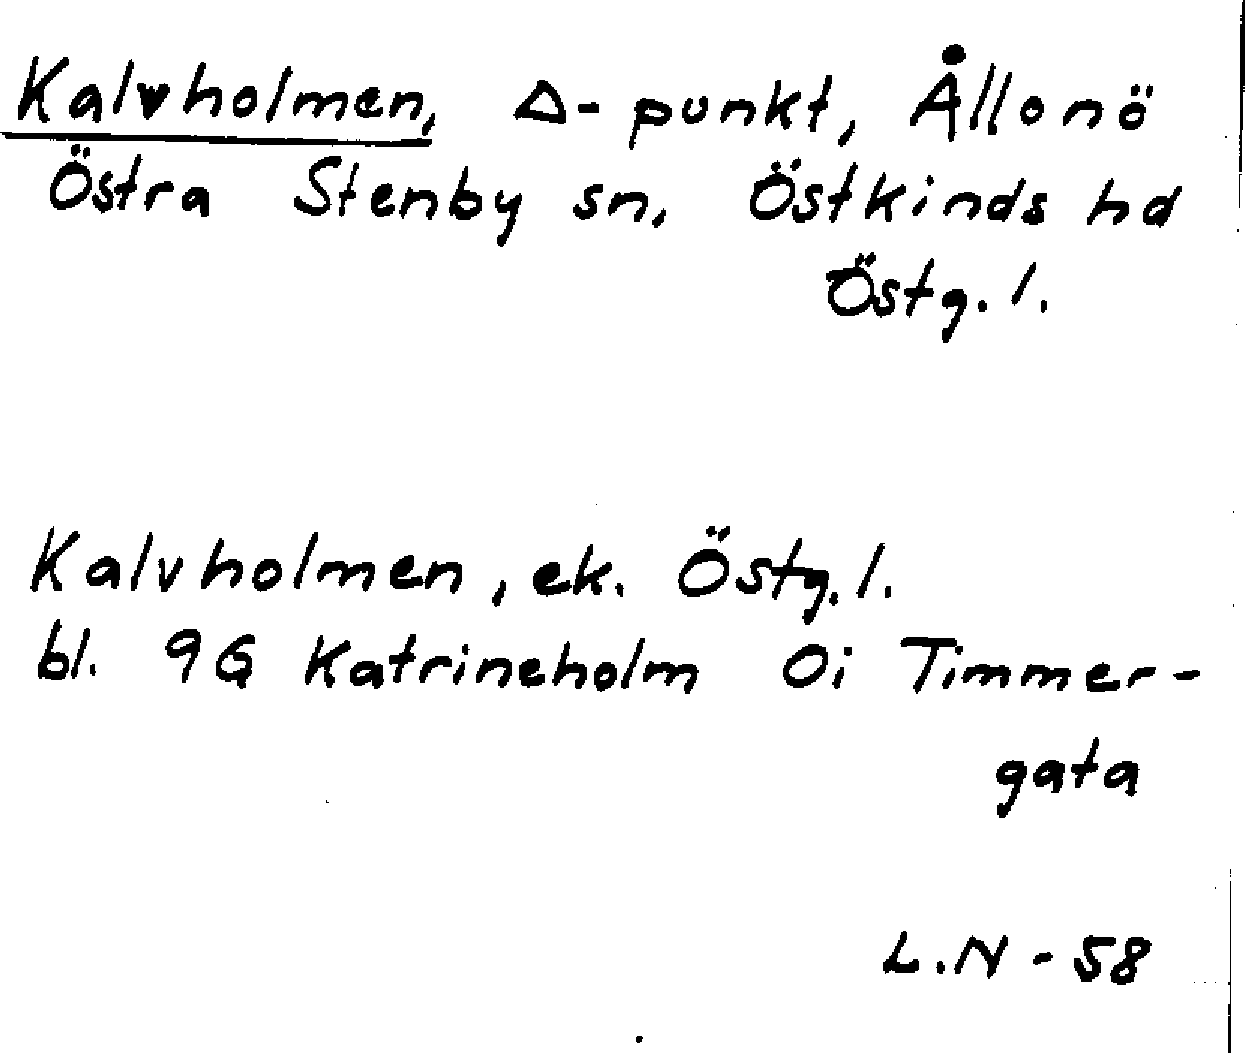 Kalvholmen, Δ-punkt, Ållonö
Östra Stenby sn, Östkinds hd
Östg. l.
Kalvholmen, ek. Östg. l.
bl. 9G Katrineholm Oi Timmer-
gata
L.N - 58